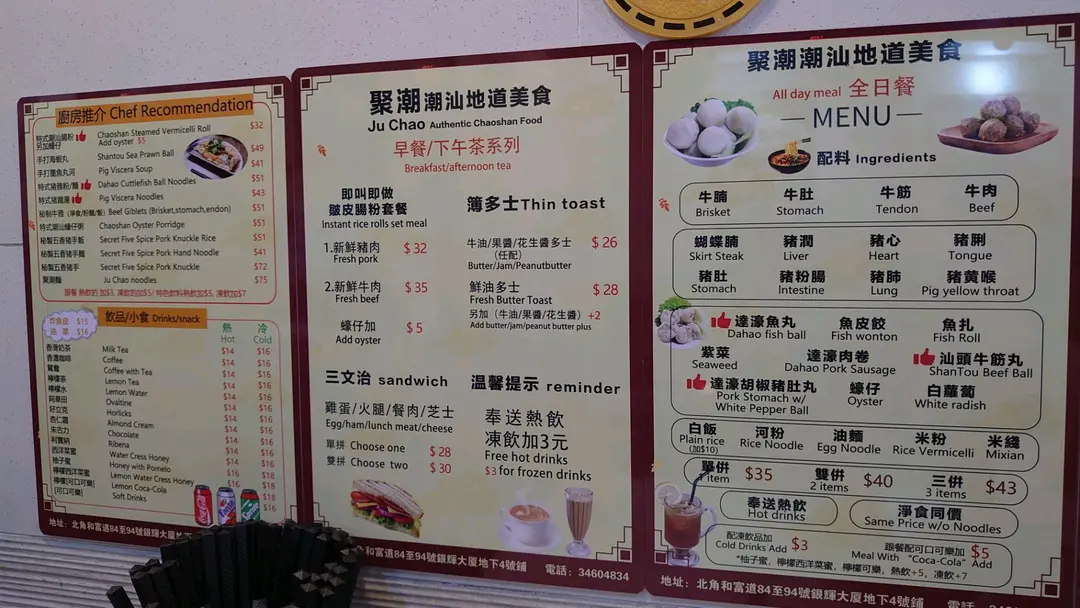 廚房推介 Chef Recommendation
Chaoshan Steamed Vermicelli Roll $32
另加蠔仔 Add oyster $5
手打海蝦丸 Shantou Sea Prawn Ball $49
手打墨魚丸河 Pig Viscera Soup $41
Dahao Cuttlefish Ball Noodles $51
Pig Viscera Noodles $43
Beef Giblets (Brisket,stomach,endon) $51
特式潮汕蠔仔粥 Chaoshan Oyster Porridge $51
秘製五香豬手飯 Secret Five Spice Pork Knuckle Rice $51
秘製五香豬手麵 Secret Five Spice Pork Hand Noodle $41
秘製五香豬手 Secret Five Spice Pork Knuckle $72
聚潮麵 Ju Chao noodles $75
炸魚皮 $15
$16
飲品/小食 Drinks/snack
熱 冷
Hot Cold
香滑奶茶 Milk Tea $14 $16
香濃咖啡 Coffee $14 $16
鴛鴦 Coffee with Tea $14 $16
檸檬茶 Lemon Tea $14 $16
檸檬水 Lemon Water $14 $16
阿華田 Ovaltine $14 $16
好立克 Horlicks $14 $16
杏仁霜 Almond Cream $14 $16
朱古力 Chocolate $14 $16
利賓納 Ribena
西洋菜蜜 Water Cress Honey
柚子蜜 Honey with Pomelo
檸檬西洋菜蜜 Lemon Water Cress Honey
檸檬(可口可樂) Lemon Coca-Cola
(可口可樂) Soft Drinks
地址：北角和富道84至94號銀輝大廈地下
聚潮潮汕地道美食
Ju Chao Authentic Chaoshan Food
早餐/下午茶系列
Breakfast/afternoon tea
即叫即做
皺皮腸粉套餐
Instant rice rolls set meal
1.新鮮豬肉 $ 32
Fresh pork
2.新鮮牛肉 $ 35
Fresh beef
蠔仔加 $ 5
Add oyster
簿多士Thin toast
牛油/果醬/花生醬多士 $ 26
(任配)
Butter/Jam/Peanutbutter
鮮油多士 $ 28
Fresh Butter Toast
另加（牛油/果醬/花生醬）+2
Add butter/jam/peanut butter plus
三文治 sandwich
雞蛋/火腿/餐肉/芝士
Egg/ham/lunch meat/cheese
單拼 Choose one $ 28
雙拼 Choose two $ 30
溫馨提示 reminder
奉送熱飲
凍飲加3元
Free hot drinks
$3 for frozen drinks
和富道84至94號銀輝大廈地下4號鋪 電話：34604834
聚潮潮汕地道美食
All day meal 全日餐
— MENU —
配料 Ingredients
牛腩 牛肚 牛筋 牛肉
Brisket Stomach Tendon Beef
蝴蝶腩 豬潤 豬心 豬脷
Skirt Steak Liver Heart Tongue
豬肚 豬粉腸 豬肺 豬黃喉
Stomach Intestine Lung Pig yellow throat
達濠魚丸 魚皮餃 魚扎
Dahao fish ball Fish wonton Fish Roll
紫菜 達濠肉卷 汕頭牛筋丸
Seaweed Dahao Pork Sausage ShanTou Beef Ball
達濠胡椒豬肚丸 蠔仔 白蘿蔔
Pork Stomach w/ White Pepper Ball Oyster White radish
白飯 河粉 油麵 米粉 米綫
Plain rice Rice Noodle Egg Noodle Rice Vermicelli Mixian
(加$10)
單併 $35 雙併 $40 三併 $43
1 item 2 items 3 items
奉送熱飲 淨食同價
Hot drinks Same Price w/o Noodles
配凍飲品加 $3 跟餐配可口可樂加 $5
Cold Drinks Add Meal With "Coca-Cola" Add
*柚子蜜，檸檬西洋菜蜜，檸檬可樂，熱飲+5，凍飲+7
地址：北角和富道84至94號銀輝大廈地下4號鋪